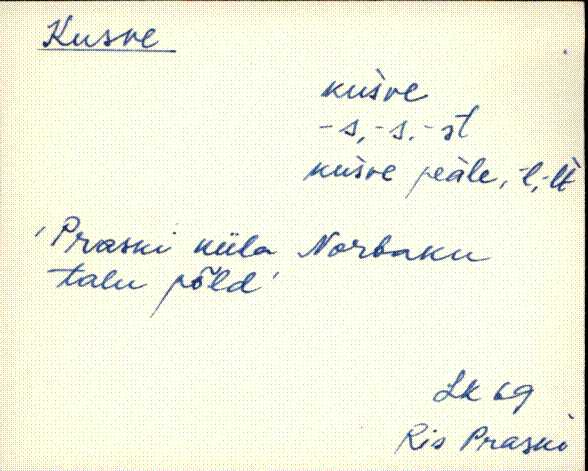 Kusve
kusve
-s, -s, -st
kusve peäle, -l, -lt
'Praski küla Norbaku
talu põld'
LK 69
Ris Praski